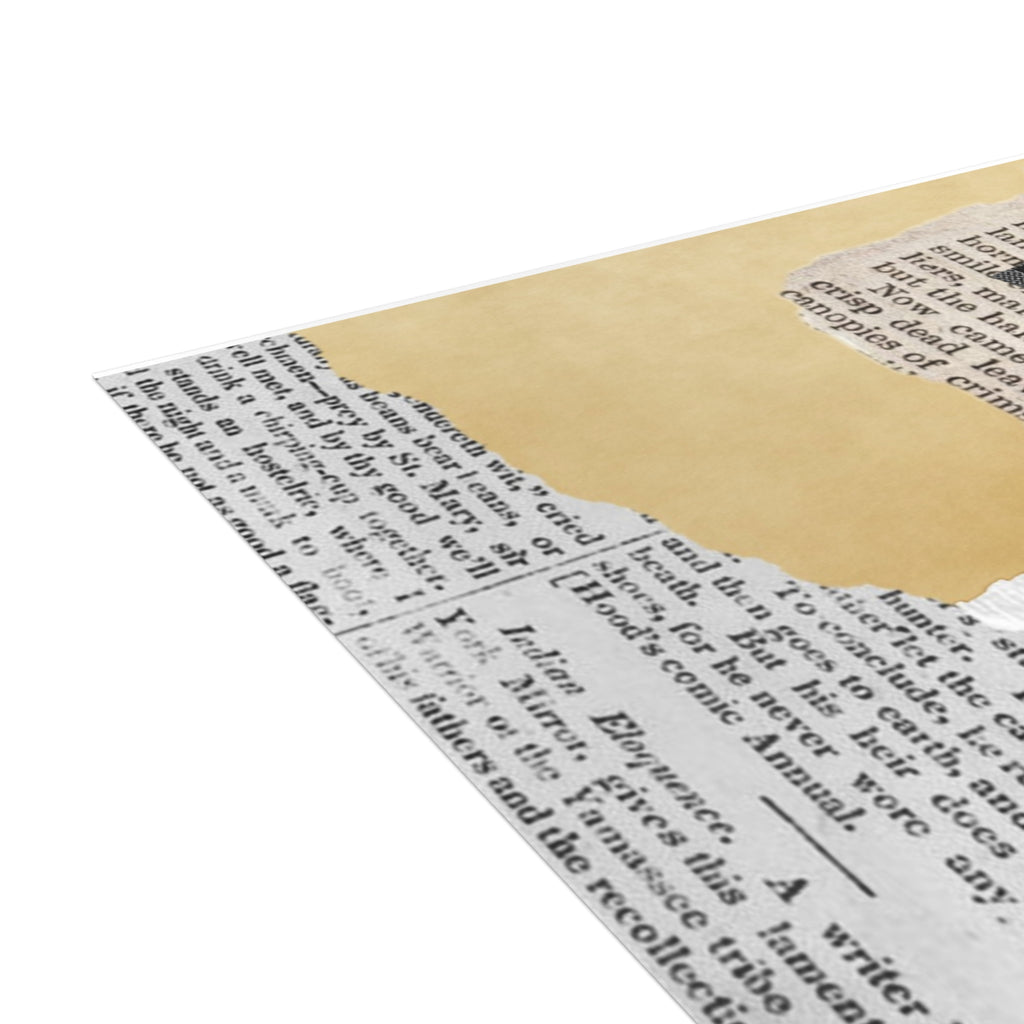 horn
smile
kers, ma
but the hal
Now came
crisp dead lea
canopies of crim
ndereth wit," cried
as beans bear or
chmen—prey by St. Mary, sir
ell met, and by thy good we'll
drink a chirping-cup together.
stands an hostelrie, where I
the night and a to
if there be not as good a
hunter.
let the ca
To conclude, he r
and then goes to earth, and
beath. But his heir does
shoes, for he never wore any.
[Hood's comic Annual.
Indian Eloquence. A writer
York Mirror, gives this lament
Warrior of the Yamassee tribe
his fathers and the recollecti